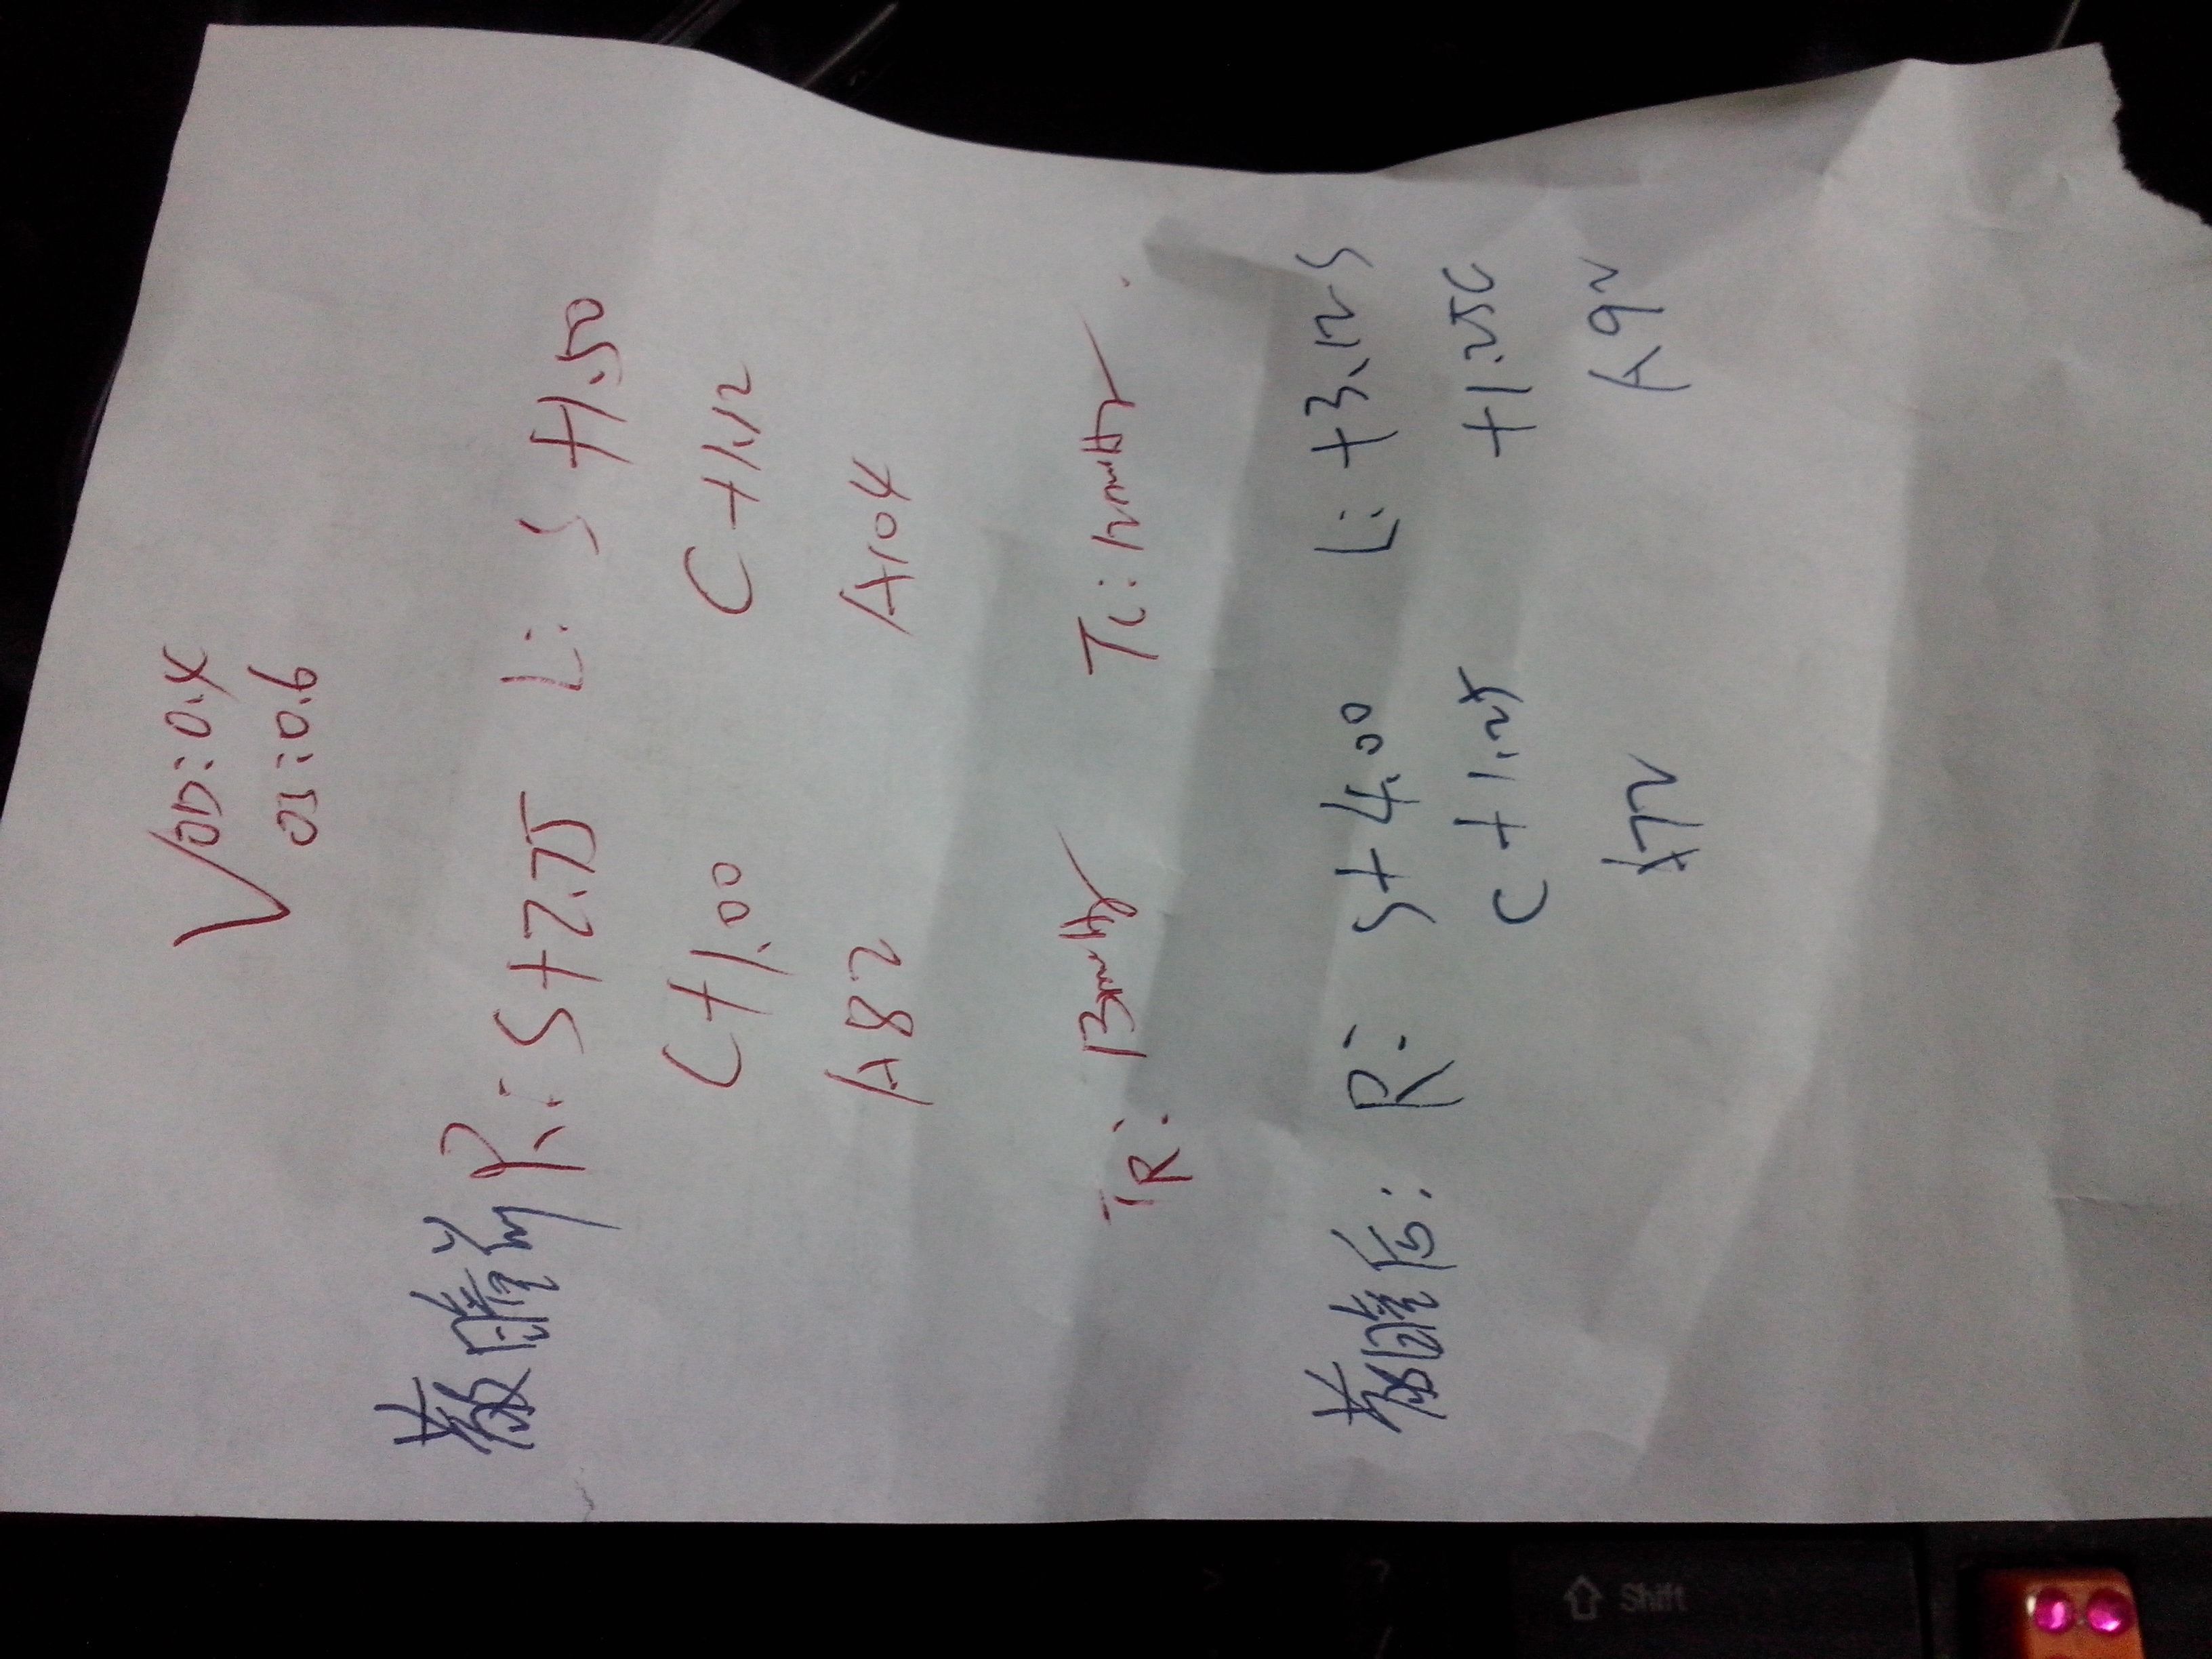 V OD:0.4
OS:0.6
散瞳前 R: S+2.75 L: S +1.50
C+1.00 C +1.12
A82 A104
TR: 13mmHg TL: 12mmHg
散瞳后: R: S+4.00 L: +3.12S
C+1.25 +1.25C
A72 A92
Shift